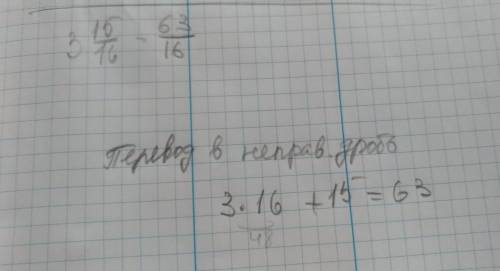 3 15/16 - 63/16
Перевод в неправ. дробь
3 · 16 + 15 = 63
48